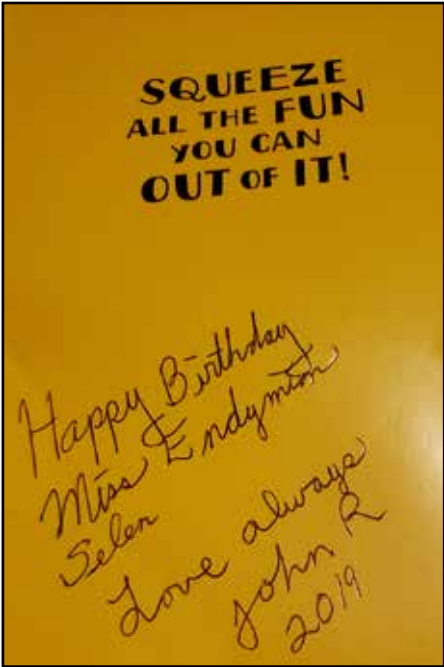 SQUEEZE
ALL THE FUN
YOU CAN
OUT OF IT!
Happy Birthday
Miss Endymion
Selen
Love always
John R
2019